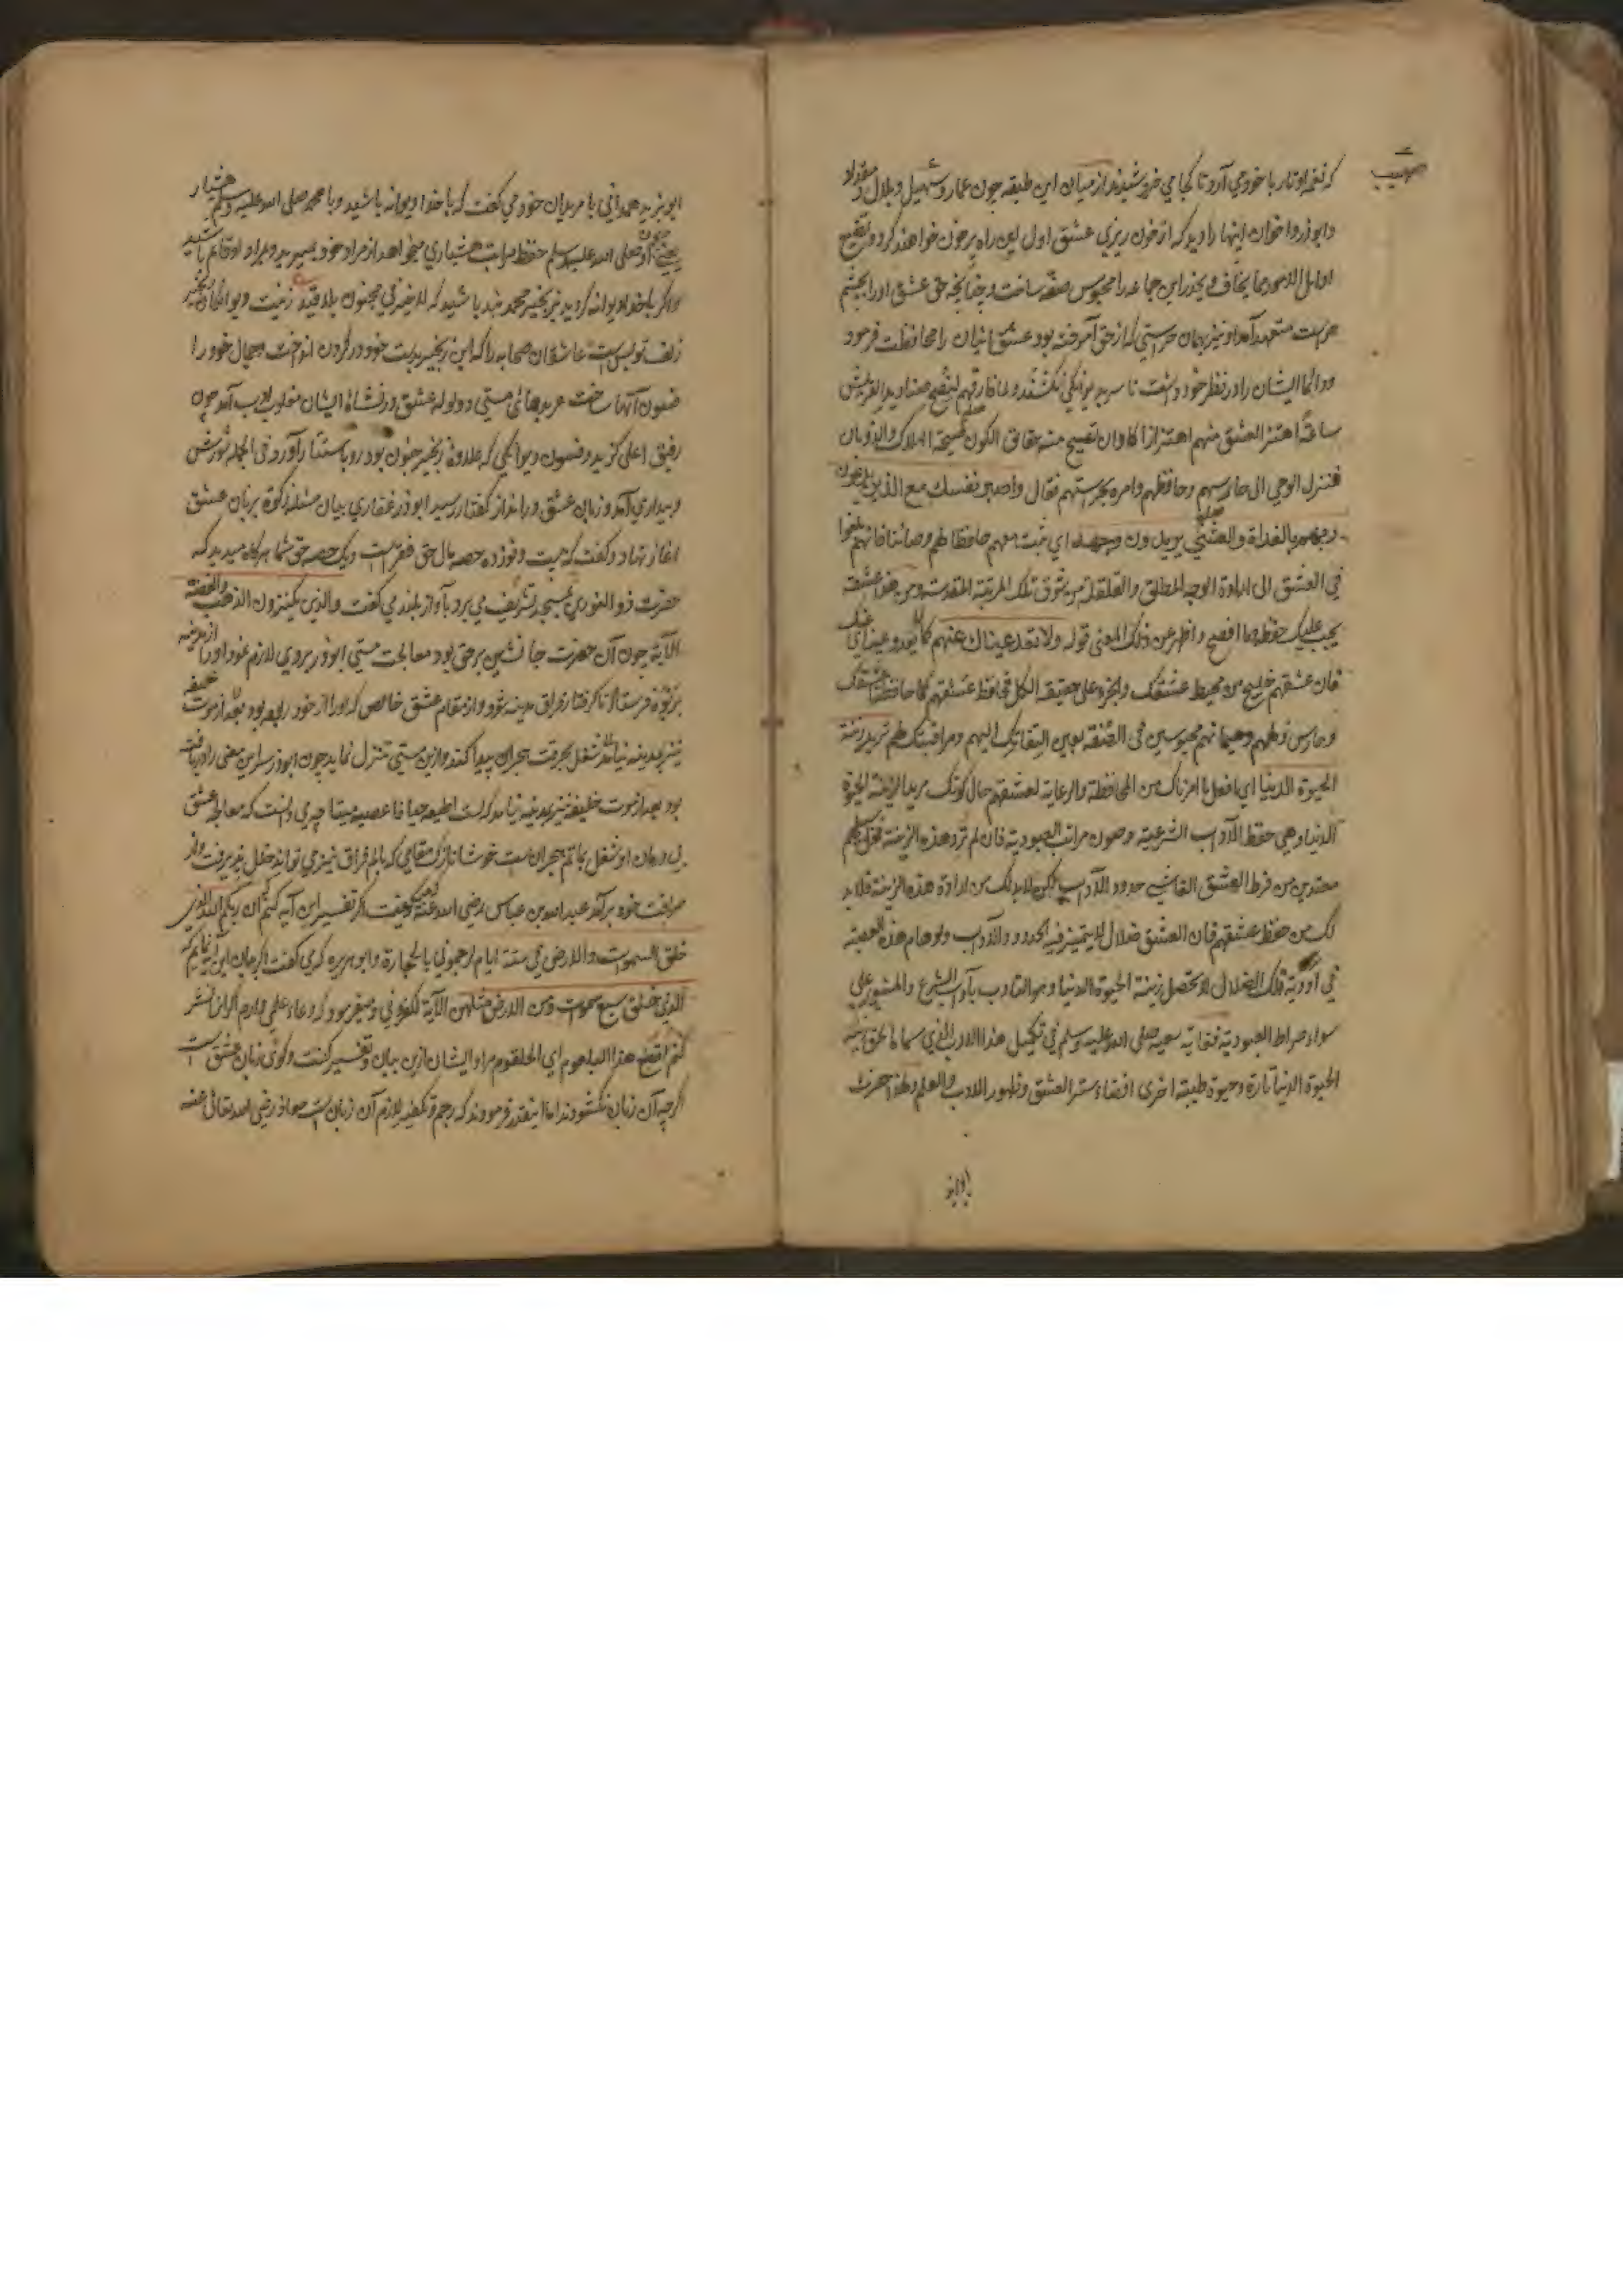 صهیب
که نغمه او تار با خود می آرد تا کجا می خروشیدند از میان این طبقه چون عمار و سهیل و بلال و مقداد
و ابوذر و اخوان اینها را دید که از خون ریزی عشق اول این راه پر خون خواهند کرد و
اوایل الامر این جماعه را محبوس صفه ساخت و چنانچه حق عشق او را بچشم
حراست متعهد آمد او نیز بهمان حراستی که از حق آموخته بود عشق ایشان را محافظت فرمود
و دائما ایشان را در نظر خود داشت تا سر بدیوانگی نکشند و لما فارقهم
ساعة اهتز العشق منهم اهتزازا کاد ان تصیح منه حقائق الکون صیحة الهلاک والذوبان
فنزل الوحی الی حارسهم وحافظهم وامره بحراستهم فقال واصبر نفسك مع الذین یدعون
ربهم بالغداة والعشی یریدون وجهه ای ثبت معهم حافظا لهم وصائنا فانهم بلغوا
فی العشق الی ارادة الوجه المطلق والقلقلة من شوق تلك المرتبة المقدسة ومن هذا عشقه
یجب علیك حفظه وافصح واظهر عن ذلك المعنی قوله ولا تعد عیناك عنهم ای
فان عشقهم خلیج من محیط عشقك والجزء علی حقیقة الکل فحافظ عشقهم کما حافظنا عشقك
وحارس ولههم وهیمانهم محبوسین فی الصفة بعین التفاتك الیهم ومراقبتك لهم ترید زینة
الحیوة الدنیا ای افعل ما امرناك من المحافظة والرعایة لعشقهم حال کونك مریدا لزینة الحیوة
الدنیا وهی حفظ الآداب الشرعیة وصون مراتب العبودیة فان لم ترد هذه الزینة فخل کلهم
معذبین من فرط العشق حدود الآداب لکن لابد لك من ارادة هذه الزینة فلابد
لك من حفظ عشقهم فان العشق ضلال لا یتمیز فیه الحدود والآداب ولو هام هذه العصبة
فی اودیة ذلك الضلال لا تحصل زینة الحیوة الدنیا وهو التادب بآداب الشرع والمشی علی
سواء صراط العبودیة فغایة سعیه صلی الله علیه وسلم فی تکمیل هذا الادب الذی سماه الحق زینة
الحیوة الدنیا تارة وحیوة طیبة اخری اخفاء سر العشق وظهور الادب والعلم ولهذا حضرت
ابو یزید همدانی با مریدان خود می گفت که با خدا دیوانه باشید و با محمد صلی الله علیه وسلم هشیار
یعنی چون او صلی الله علیه وسلم حفظ مراتب هشیاری میخواهد از مراد خود بمیرید و بمراد او قائم باشید
و اگر با خدا دیوانه گردید بزنجیر محمد بند باشید که لا خیر فی مجنون بلا قید
زلف تو بس است عاشقان صحابه را که این زنجیر بدست خود در گردن انداخت و جمال خود را
فسون آنها ساخت عربدهای مستی و ولوله عشق در نشاه ایشان مغلوب ادب آمد چون
رفیق اعلی گزید و فسون دیوانگی که علاوه زنجیر جنون بود رو باستتار آورد فی الجمله شورش
و بیداری آمد و زبان عشق در انداز گفتار رسید ابوذر غفاری بیان مسئله زکوة بزبان عشق
آغاز نهاد و گفت که بیست و نوزده حصه مال حق فقر است و یک حصه حق شما هر گاه میدید که
حضرت ذو النورین بمسجد تشریف می برد بآواز بلند می گفت والذین یکنزون الذهب والفضة
الآیة چون آن حضرت جانشین بر حق بود معالجت مستی ابوذر بروی لازم نمود او را از مدینه
بزبذه فرستاد تا گرفتار فراق مدینه شود و از مقام عشق خالص که او را از خود ربوده بود بعد از موت خلیفه
نیز بمدینه نیامد شغل بحرقت هجران پیدا کند و ازین مستی تنزل نماید چون ابوذر سر این معنی را دریافته
بود بعد از موت خلیفه نیز بمدینه نیامد که لست اطیعه حیا فاعصیه میتا چه می دانست که معالجه عشق
بی درمان او شغل بماتم هجران است خوشا نازک مقامی که بالم فراق نیز می تواند خلل پذیرفت و از
صرافت خود برآمد عبد الله بن عباس رضی الله عنه گفت اگر تفسیر این آیه کنم ان ربکم الله الذی
خلق السموات والارض فی ستة ایام لرجمونی بالحجارة و ابو هریره گفت اگر بیان این آیه نمایم که
الذی خلق سبع سموات ومن الارض مثلهن الآیة لکفرونی و میفرمود که دو وعاء علمی دارم اگر این نشر
کنم لقطع هذا البلعوم ای الحلقوم مراد ایشان ازین بیان و تفسیر گفت و گوی زبان عشق است
اگرچه آن زبان نکشودند اما اینقدر فرمودند که رجم و تکفیر لازم آن زبان است معاذ رضی الله تعالی عنه